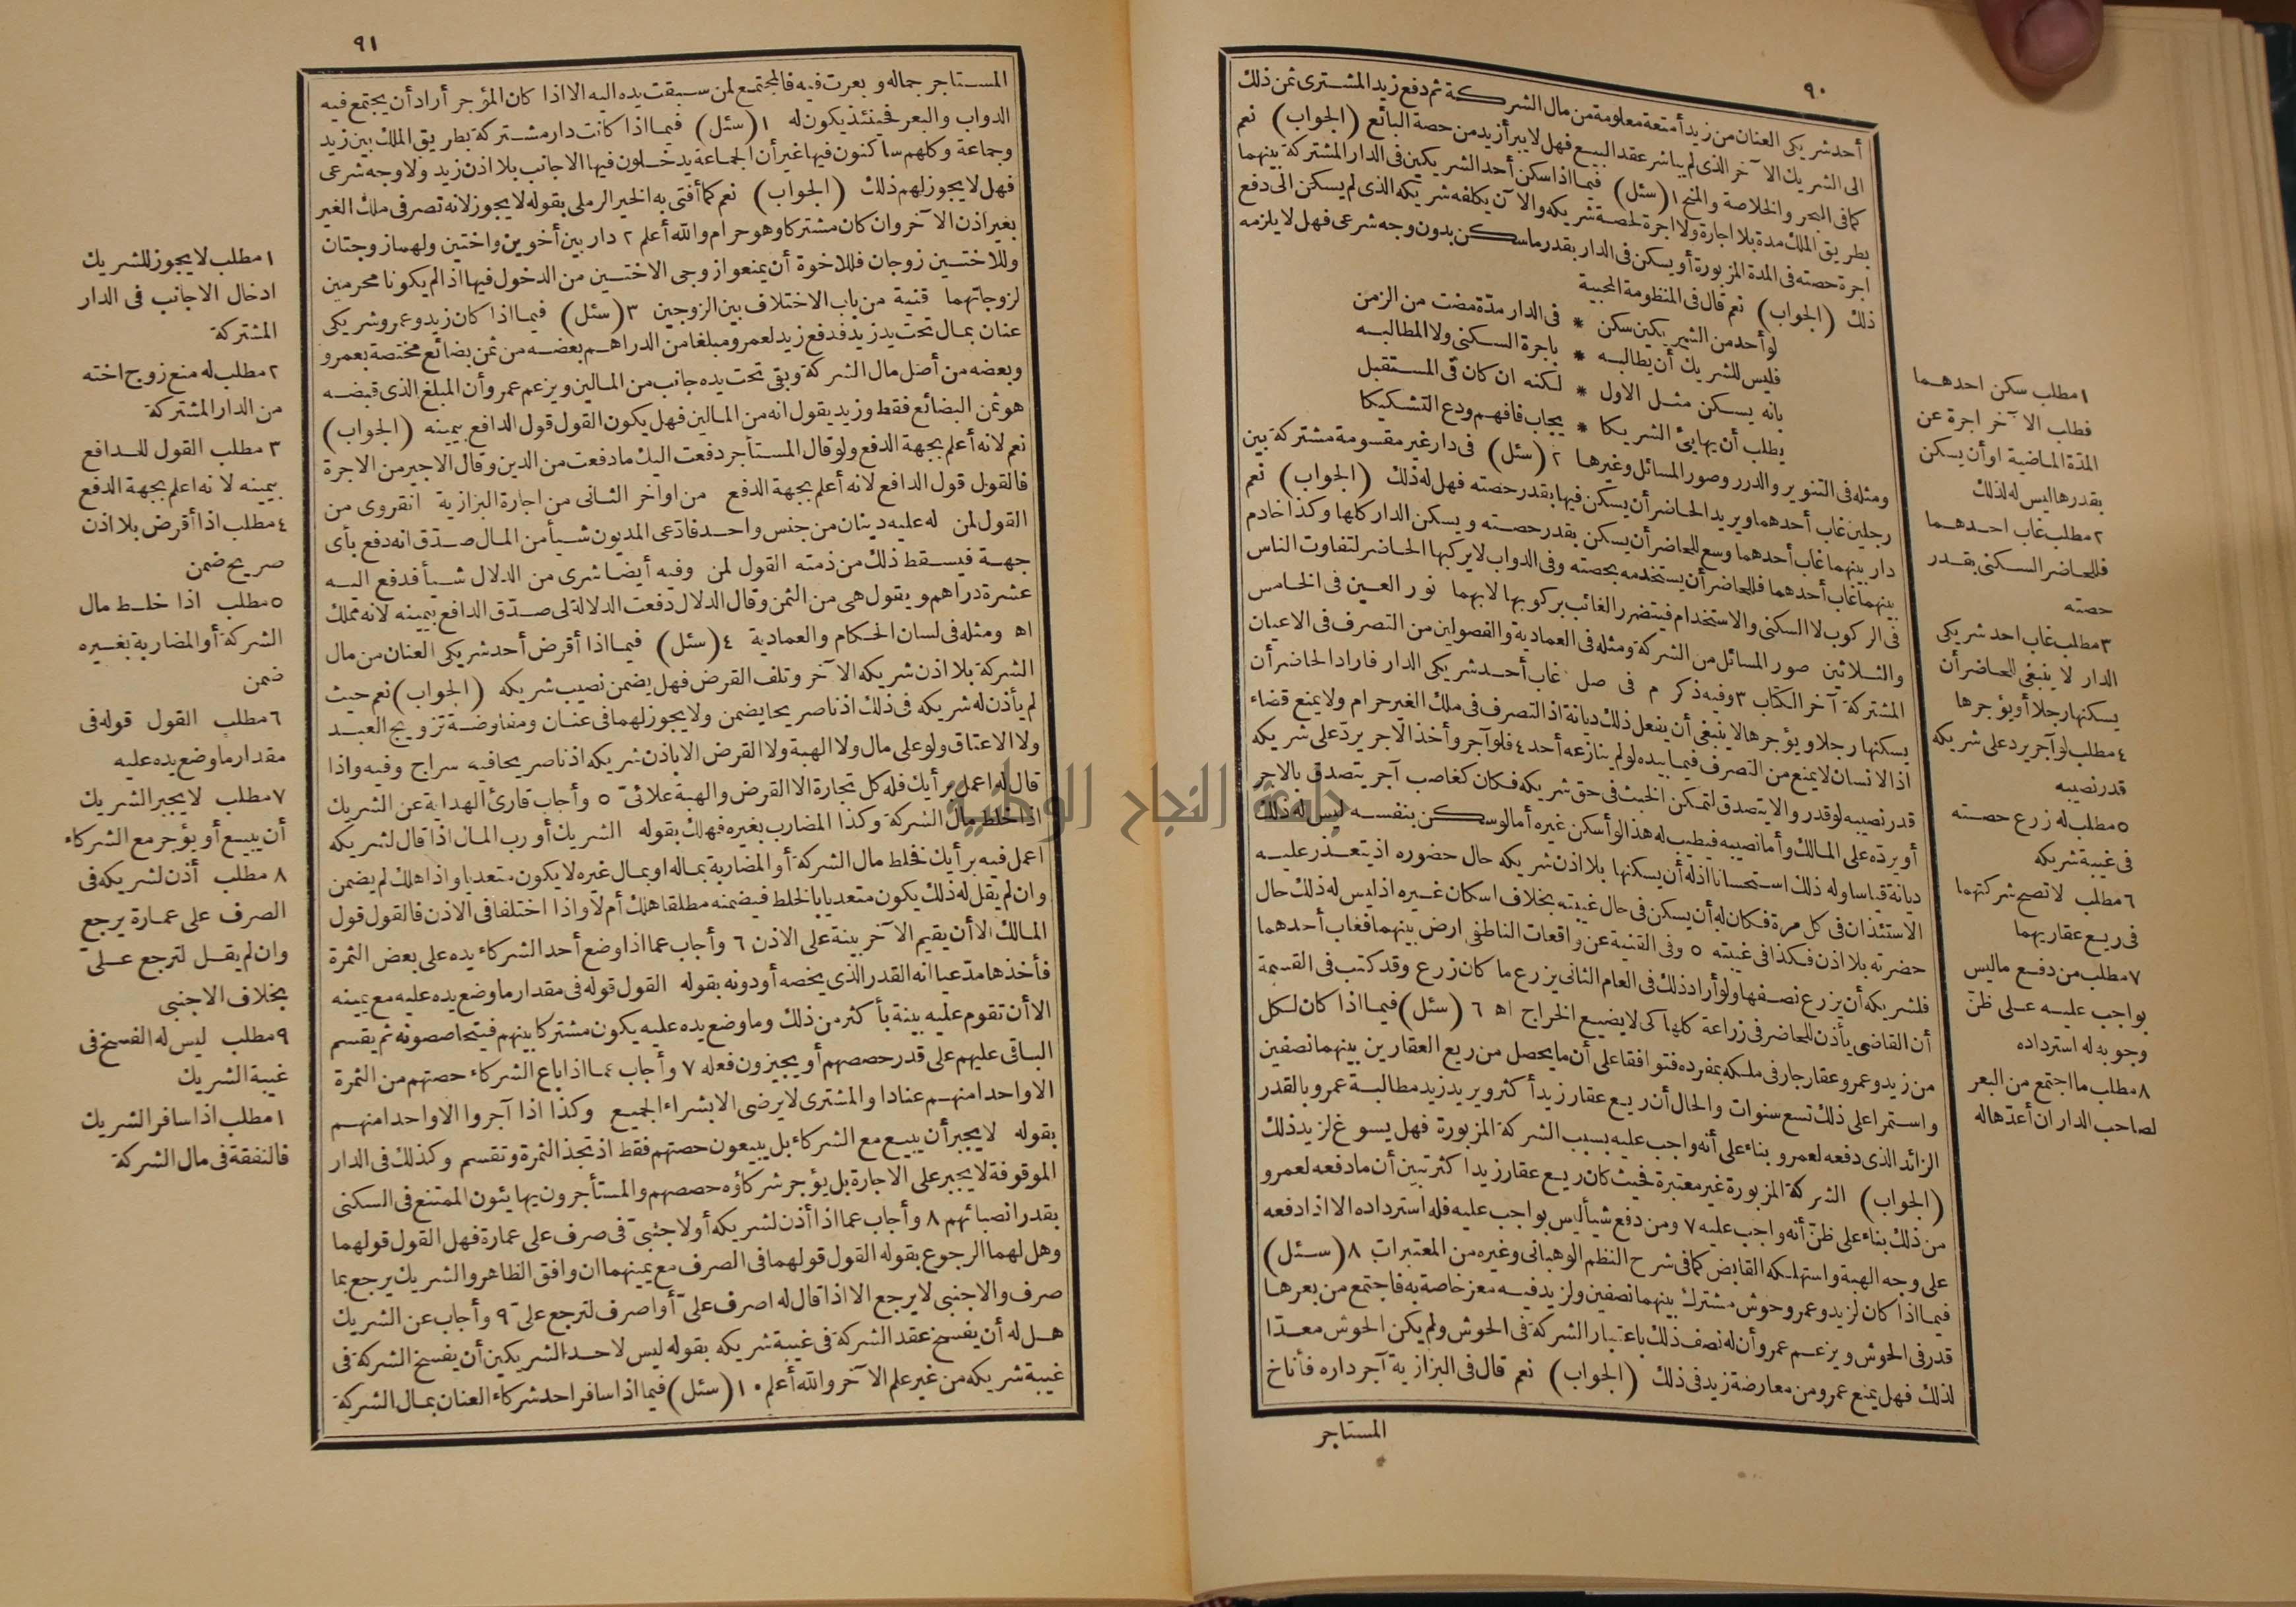 ٩٠
أحد شريكى العنان من زيد أمتعة معلومة من مال الشركة ثم دفع زيد المشترى ثمن ذلك
الى الشريك الآخر الذى لم يباشر عقد البيع فهل لا يبرأ زيد من حصة البائع (الجواب) نعم
كما فى البحر والخلاصة والمنح ١ (سئل) فيما اذا سكن أحد الشريكين فى الدار المشتركة بينهما
بطريق الملك مدة بلا اجارة ولا اجرة لحصة شريكه والآن يكلفه شريكه الذى لم يسكن الى دفع
اجرة حصته فى المدة المزبورة أو يسكن فى الدار بقدر ما سكن بدون وجه شرعى فهل لا يلزمه
ذلك (الجواب) نعم قال فى المنظومة المحبية
لو أحد من الشريكين سكن * فى الدار مدّة مضت من الزمن
فليس للشريك أن يطالبه * باجرة السكنى ولا المطالبه
بانه يسكن مثل الاول * لكنه ان كان فى المستقبل
يطلب أن يهايئ الشريكا * يجاب فافهم ودع التشكيكا
ومثله فى التنوير والدرر وصور المسائل وغيرها ٢ (سئل) فى دار غير مقسومة مشتركة بين
رجلين غاب أحدهما ويريد الحاضر أن يسكن فيها بقدر حصته فهل له ذلك (الجواب) نعم
دار بينهما غاب أحدهما وسع للحاضر أن يسكن بقدر حصته ويسكن الدار كلها وكذا خادم
بينهما غاب أحدهما فللحاضر أن يستخدمه بحصته وفى الدواب لا يركبها الحاضر لتفاوت الناس
فى الركوب لا السكنى والاستخدام فيتضرر الغائب بركوبها لا بهما نور العين فى الخامس
والثلاثين صور المسائل من الشركة ومثله فى العمادية والفصولين من التصرف فى الاعيان
المشتركة آخر الكتاب ٣ وفيه ذكر م فى صل غاب أحد شريكى الدار فاراد الحاضر أن
يسكنها رجلا ويؤجرها لا ينبغى أن يفعل ذلك ديانة اذ التصرف فى ملك الغير حرام ولا يمنع قضاء
اذ الانسان لا يمنع من التصرف فيما بيده لو لم ينازعه أحد ٤ فلو آجر وأخذ الاجر يردّ على شريكه
قدر نصيبه لو قدر والا يتصدق لتمكن الخبث فى حق شريكه فكان كغاصب آجر يتصدق بالاجر
أو يردّه على المالك وأما نصيبه فيطيب له هذا لو أسكن غيره أما لو سكن بنفسه ليس له ذلك
ديانة قياسا وله ذلك استحسانا اذ له أن يسكنها بلا اذن شريكه حال حضوره اذ يتعذر عليه
الاستئذان فى كل مرة فكان له أن يسكن فى حال غيبته بخلاف اسكان غيره اذ ليس له ذلك حال
حضرته بلا اذن فكذا فى غيبته ٥ وفى القنية عن واقعات الناطفى ارض بينهما فغاب أحدهما
فلشريكه أن يزرع نصفها ولو أراد ذلك فى العام الثانى يزرع ما كان زرع وقد كتب فى القسمة
أن القاضى يأذن للحاضر فى زراعة كلها كى لا يضيع الخراج اه ٦ (سئل) فيما اذا كان لكل
من زيد وعمرو عقار جار فى ملكه بمفرده فتوافقا على أن ما يحصل من ريع العقارين بينهما نصفين
واستمرا على ذلك تسع سنوات والحال أن ريع عقار زيد أكثر ويريد زيد مطالبة عمرو بالقدر
الزائد الذى دفعه لعمرو بناء على أنه واجب عليه بسبب الشركة المزبورة فهل يسوغ لزيد ذلك
(الجواب) الشركة المزبورة غير معتبرة فحيث كان ريع عقار زيد اكثر تبين أن ما دفعه لعمرو
من ذلك بناء على ظنّ أنه واجب عليه ٧ ومن دفع شيأ ليس بواجب عليه فله استرداده الا اذا دفعه
على وجه الهبة واستهلكه القابض كما فى شرح النظم الوهبانى وغيره من المعتبرات ٨ (سئل)
فيما اذا كان لزيد وعمرو حوش مشترك بينهما نصفين ولزيد فيه معز خاصة به فاجتمع من بعرها
قدر فى الحوش ويزعم عمرو أن له نصف ذلك باعتبار الشركة فى الحوش ولم يكن الحوش معدّا
لذلك فهل يمنع عمرو من معارضة زيد فى ذلك (الجواب) نعم قال فى البزازية آجر داره فأناخ
المستاجر
١ مطلب سكن احدهما
فطلب الآخر اجرة عن
المدّة الماضية او أن يسكن
بقدرها ليس له ذلك
٢ مطلب غاب احدهما
فللحاضر السكنى بقدر
حصته
٣ مطلب غاب احد شريكى
الدار لا ينبغى للحاضر أن
يسكنها رجلا أو يؤجرها
٤ مطلب لو آجر يرد على شريكه
قدر نصيبه
٥ مطلب له زرع حصته
فى غيبة شريكه
٦ مطلب لا تصح شركتهما
فى ريع عقاريهما
٧ مطلب من دفع ما ليس
بواجب عليه على ظنّ
وجوبه له استرداده
٨ مطلب ما اجتمع من البعر
لصاحب الدار ان أعدّها له
٩١
المستاجر جماله وبعرت فيه فالمجتمع لمن سبقت يده اليه الا اذا كان المؤجر أراد أن يجتمع فيه
الدواب والبعر فحينئذ يكون له ١ (سئل) فيما اذا كانت دار مشتركة بطريق الملك بين زيد
وجماعة وكلهم ساكنون فيها غير أن الجماعة يدخلون فيها الاجانب بلا اذن زيد ولا وجه شرعى
فهل لا يجوز لهم ذلك (الجواب) نعم كما أفتى به الخير الرملى بقوله لا يجوز لانه تصرف فى ملك الغير
بغير اذن الآخر وان كان مشتركا وهو حرام والله أعلم ٢ دار بين أخوين واختين ولهما زوجتان
وللاختين زوجان فللاخوة أن يمنعوا زوجى الاختين من الدخول فيها اذا لم يكونا محرمين
لزوجاتهما قنية من باب الاختلاف بين الزوجين ٣ (سئل) فيما اذا كان زيد وعمرو شريكى
عنان بمال تحت يد زيد فدفع زيد لعمرو مبلغا من الدراهم بعضه من ثمن بضائع مختصة بعمرو
وبعضه من أصل مال الشركة وبقى تحت يده جانب من المالين ويزعم عمرو أن المبلغ الذى قبضه
هو ثمن البضائع فقط وزيد يقول انه من المالين فهل يكون القول قول الدافع بيمينه (الجواب)
نعم لانه أعلم بجهة الدفع ولو قال المستأجر دفعت اليك ما دفعت من الدين وقال الاجير من الاجرة
فالقول قول الدافع لانه أعلم بجهة الدفع من اواخر الثانى من اجارة البزازية انقروى من
القول لمن له عليه دينان من جنس واحد فادّعى المديون شيأ من المال صدّق انه دفع بأى
جهة فيسقط ذلك من ذمته القول لمن وفيه أيضا شرى من الدلال شيأ فدفع اليه
عشرة دراهم ويقول هى من الثمن وقال الدلال دفعت الدلالة لى صدّق الدافع بيمينه لانه مملك
اه ومثله فى لسان الحكام والعمادية ٤ (سئل) فيما اذا أقرض أحد شريكى العنان من مال
الشركة بلا اذن شريكه الآخر وتلف القرض فهل يضمن نصيب شريكه (الجواب) نعم حيث
لم يأذن له شريكه فى ذلك اذنا صريحا يضمن ولا يجوز لهما فى عنان ومفاوضة تزويج العبد
ولا الاعتاق ولو على مال ولا الهبة ولا القرض الا باذن شريكه اذنا صريحا فيه سراج وفيه واذا
قال له اعمل برأيك فله كل تجارة الا القرض والهبة علائىّ ٥ وأجاب قارئ الهداية عن الشريك
اذا خلط مال الشركة وكذا المضارب بغيره فهلك بقوله الشريك أو رب المال اذا قال لشريكه
اعمل فيه برأيك فخلط مال الشركة أو المضاربة بماله او بمال غيره لا يكون متعديا واذا هلك لم يضمن
وان لم يقل له ذلك يكون متعديا بالخلط فيضمنه مطلقا هلك أم لا واذا اختلفا فى الاذن فالقول قول
المالك الا أن يقيم الآخر بينة على الاذن ٦ وأجاب عما اذا وضع أحد الشركاء يده على بعض الثمرة
فأخذها مدّعيا انه القدر الذى يخصه أو دونه بقوله القول قوله فى مقدار ما وضع يده عليه مع يمينه
الا أن تقوم عليه بينة بأكثر من ذلك وما وضع يده عليه يكون مشتركا بينهم فيتحاصصونه ثم يقسم
الباقى عليهم على قدر حصصهم أو يجيزون فعله ٧ وأجاب عما اذا باع الشركاء حصتهم من الثمرة
الا واحدا منهم عنادا والمشترى لا يرضى الا بشراء الجميع وكذا اذا آجروا الا واحدا منهم
بقوله لا يجبر أن يبيع مع الشركاء بل يبيعون حصتهم فقط اذ تجذ الثمرة وتقسم وكذلك فى الدار
الموقوفة لا يجبر على الاجارة بل يؤجر شركاؤه حصصهم والمستأجرون يهايئون الممتنع فى السكنى
بقدر انصبائهم ٨ وأجاب عما اذا أذن لشريكه أو لاجنبىّ فى صرف على عمارة فهل القول قولهما
وهل لهما الرجوع بقوله القول قولهما فى الصرف مع يمينهما ان وافق الظاهر والشريك يرجع بما
صرف والاجنبى لا يرجع الا اذا قال له اصرف علىّ أو اصرف لترجع علىّ ٩ وأجاب عن الشريك
هل له أن يفسخ عقد الشركة فى غيبة شريكه بقوله ليس لاحد الشريكين أن يفسخ الشركة فى
غيبة شريكه من غير علم الآخر والله أعلم ١٠ (سئل) فيما اذا سافر احد شركاء العنان بمال الشركة
١ مطلب لا يجوز للشريك
ادخال الاجانب فى الدار
المشتركة
٢ مطلب له منع زوج اخته
من الدار المشتركة
٣ مطلب القول للدافع
بيمينه لانه اعلم بجهة الدفع
٤ مطلب اذا أقرض بلا اذن
صريح ضمن
٥ مطلب اذا خلط مال
الشركة أو المضاربة بغيره
ضمن
٦ مطلب القول قوله فى
مقدار ما وضع يده عليه
٧ مطلب لا يجبر الشريك
أن يبيع أو يؤجر مع الشركاء
٨ مطلب أذن لشريكه فى
الصرف على عمارة يرجع
وان لم يقل لترجع علىّ
بخلاف الاجنبى
٩ مطلب ليس له الفسخ فى
غيبة الشريك
١ مطلب اذا سافر الشريك
فالنفقة فى مال الشركة
جامعة النجاح الوطنية